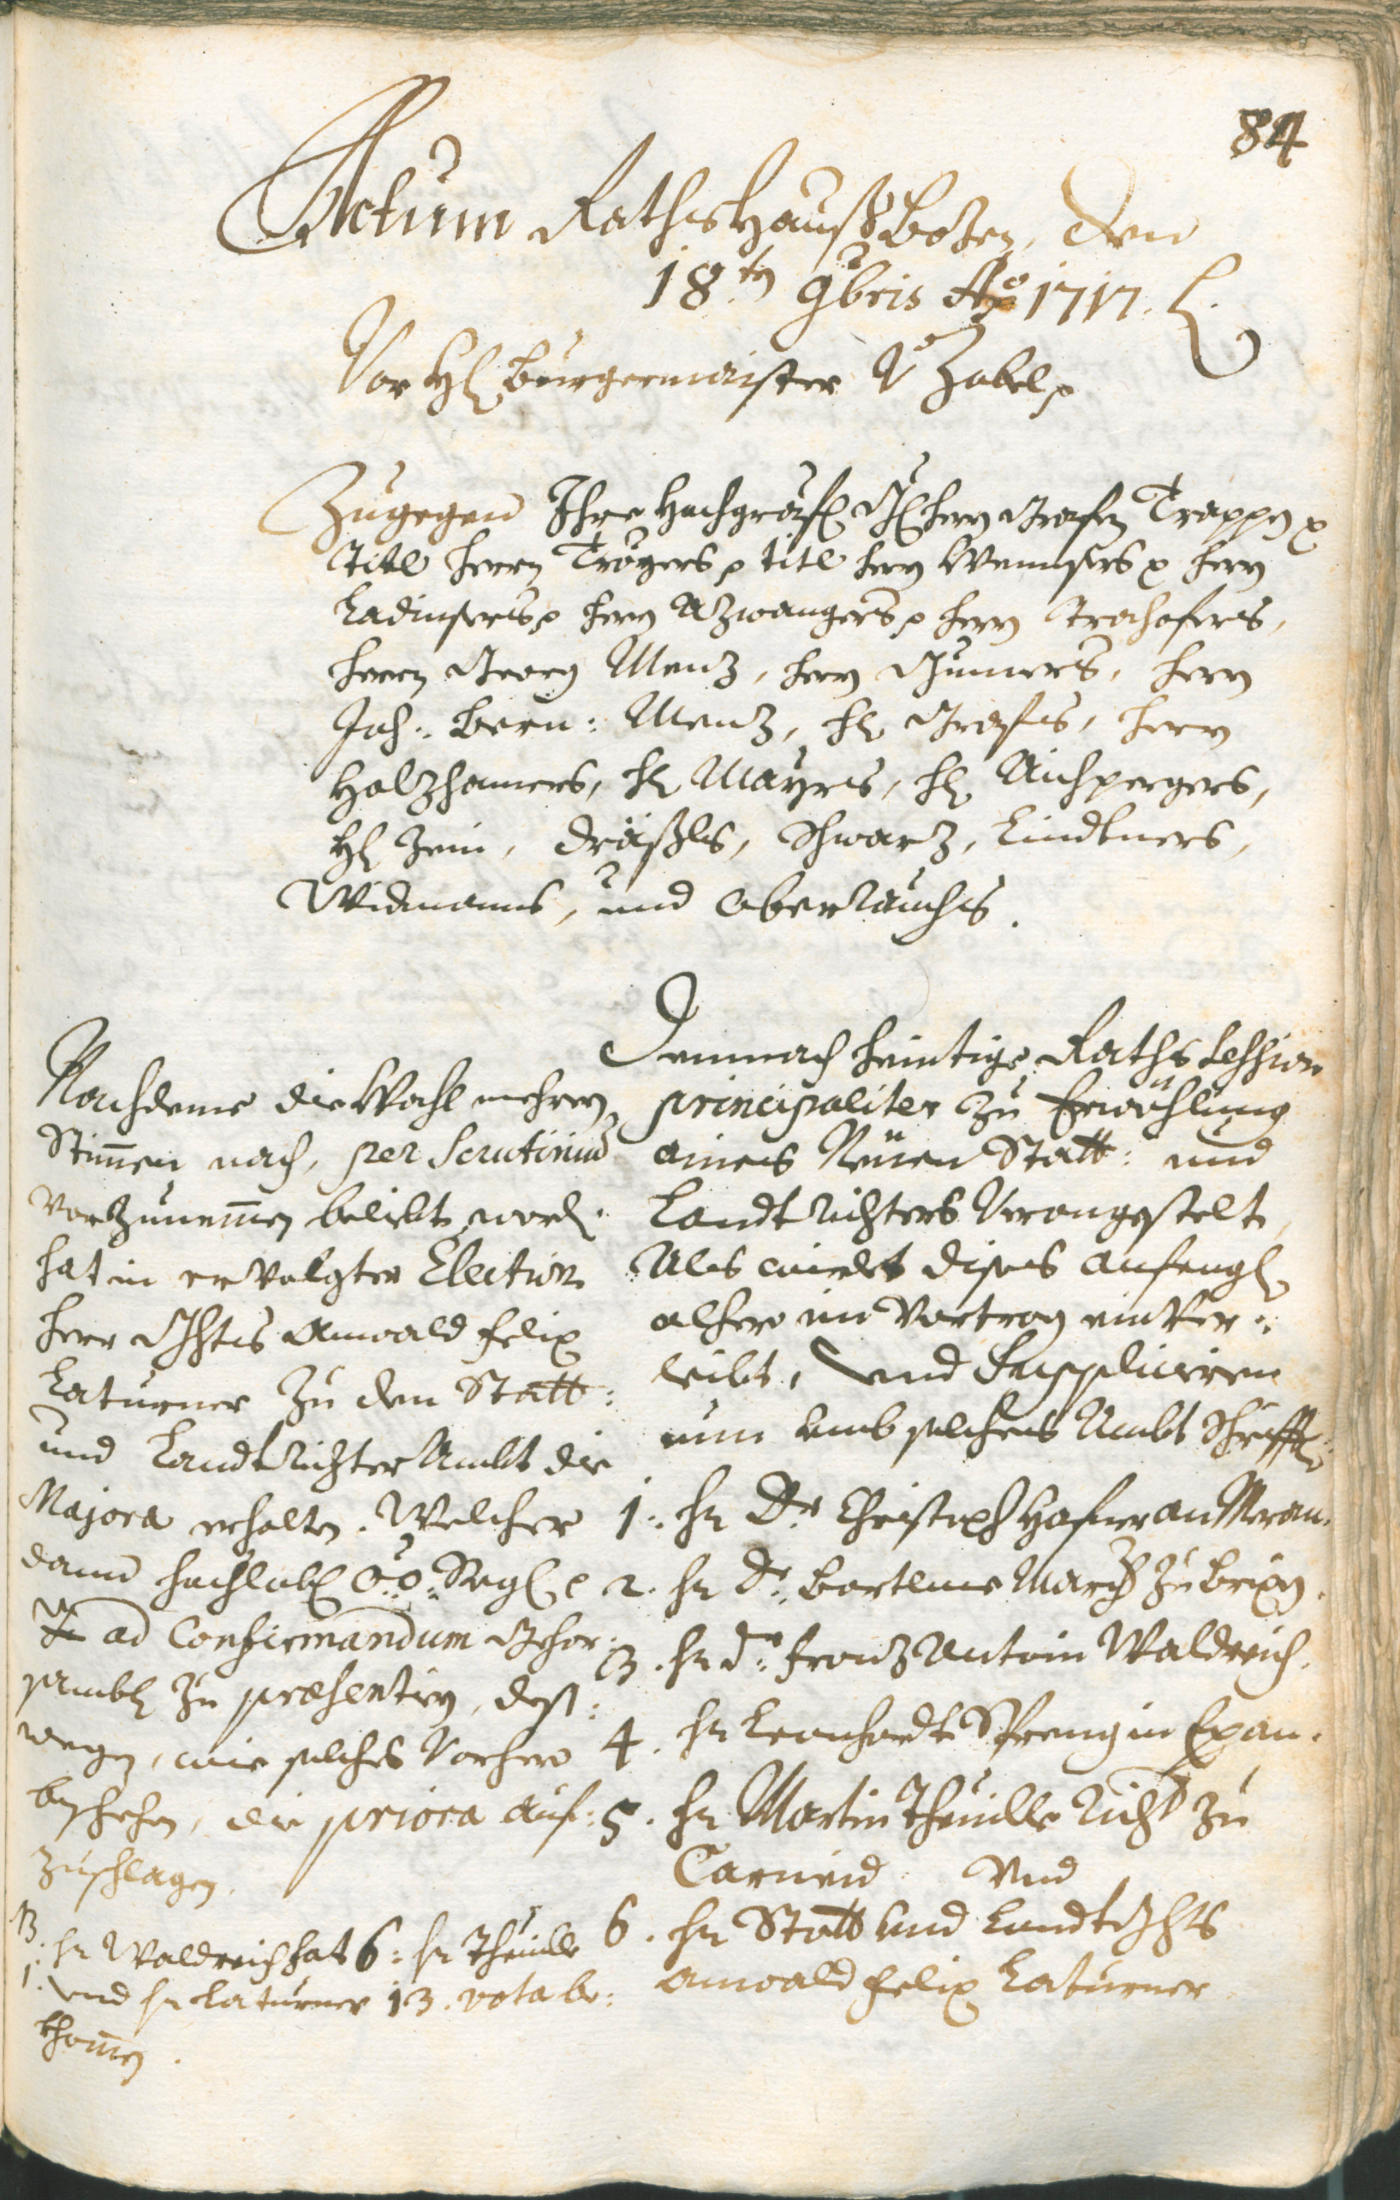 84
Actum Rathshauß Bozen, den
18.tn 9bris Ao 1717.
Vor H: Burgermaister V: Zobel p
Zugegen Ihro Hochgräfl: Herrn Grafen Trappen p
Titl Herrn Trögers p titl Herrn Wenusers p Herrn
Ladinsers p Herrn Azwangers p Herrn Grashofers,
Herrn Georg Menz, Herrn Gumers, Herrn
Joh: Bern: Menz, H: Grafens, Herrn
Holzhamers, H: Mayrs, H: Aichpergers,
H: Zein, Dräxls, Schwarz, Lindtners,
Widmanns, und Oberrauchs.
Demnach heintige Raths Session
principaliter zu Erwöhlung
aines Neuen Statt: und
Landtrichters Verangestelt,
Als wirdet dises anfengl:
alhero in Vortrag einver:
leibt, und Suppliciren
nun umb solches Ambt Schrifftl:
1. Hr Dr Christoph Hafner an Meran.
2. Hr Dr Bartlme March zu Brixen.
3. Hr Dr Franz Antoni Waldreich.
4. Hr Leonhardt Spreng in Eppan.
5. Hr Martin Theuille Richter zu
Carneid und
6. Hr Statt und Landtgchts
anwald Felix Laturner.
Nachdeme die Wahl mehren
Stimmen nach, per Scrutinium
vorzunemmen beliebt word:
hat in ervolgter Election
Herr Gchts Anwald Felix
Laturner zu den Statt:
und Landtrichter Ambt die
Majora erhalten. Welcher
dann hochlobl: O:Ö: Regl: p
ad Confirmandum gehor:
sambl: zu præsentirn, dess:
wegen, wie solches Vorhero
beschehen, die priora auf:
zuschlagen.
Hr Waldreich hat 6: Hr Theuille
1. und Hr Laturner 13. vota be:
khommen.